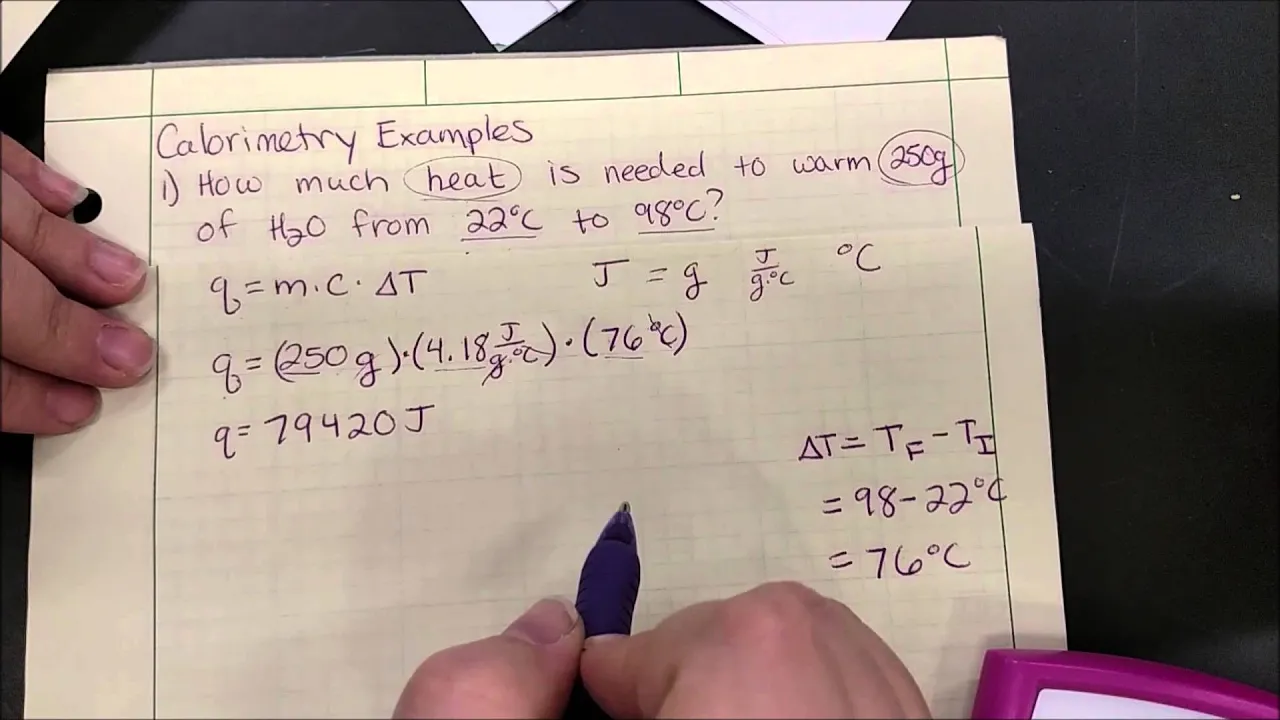 Calorimetry Examples
1) How much heat is needed to warm 250g
of H₂O from 22°C to 98°C?
q = m·c·ΔT J = g J/g·°C °C
q = (250 g)·(4.18 J/g·°C)·(76°C)
q = 79420 J
ΔT = T_F - T_I
= 98 - 22°C
= 76°C